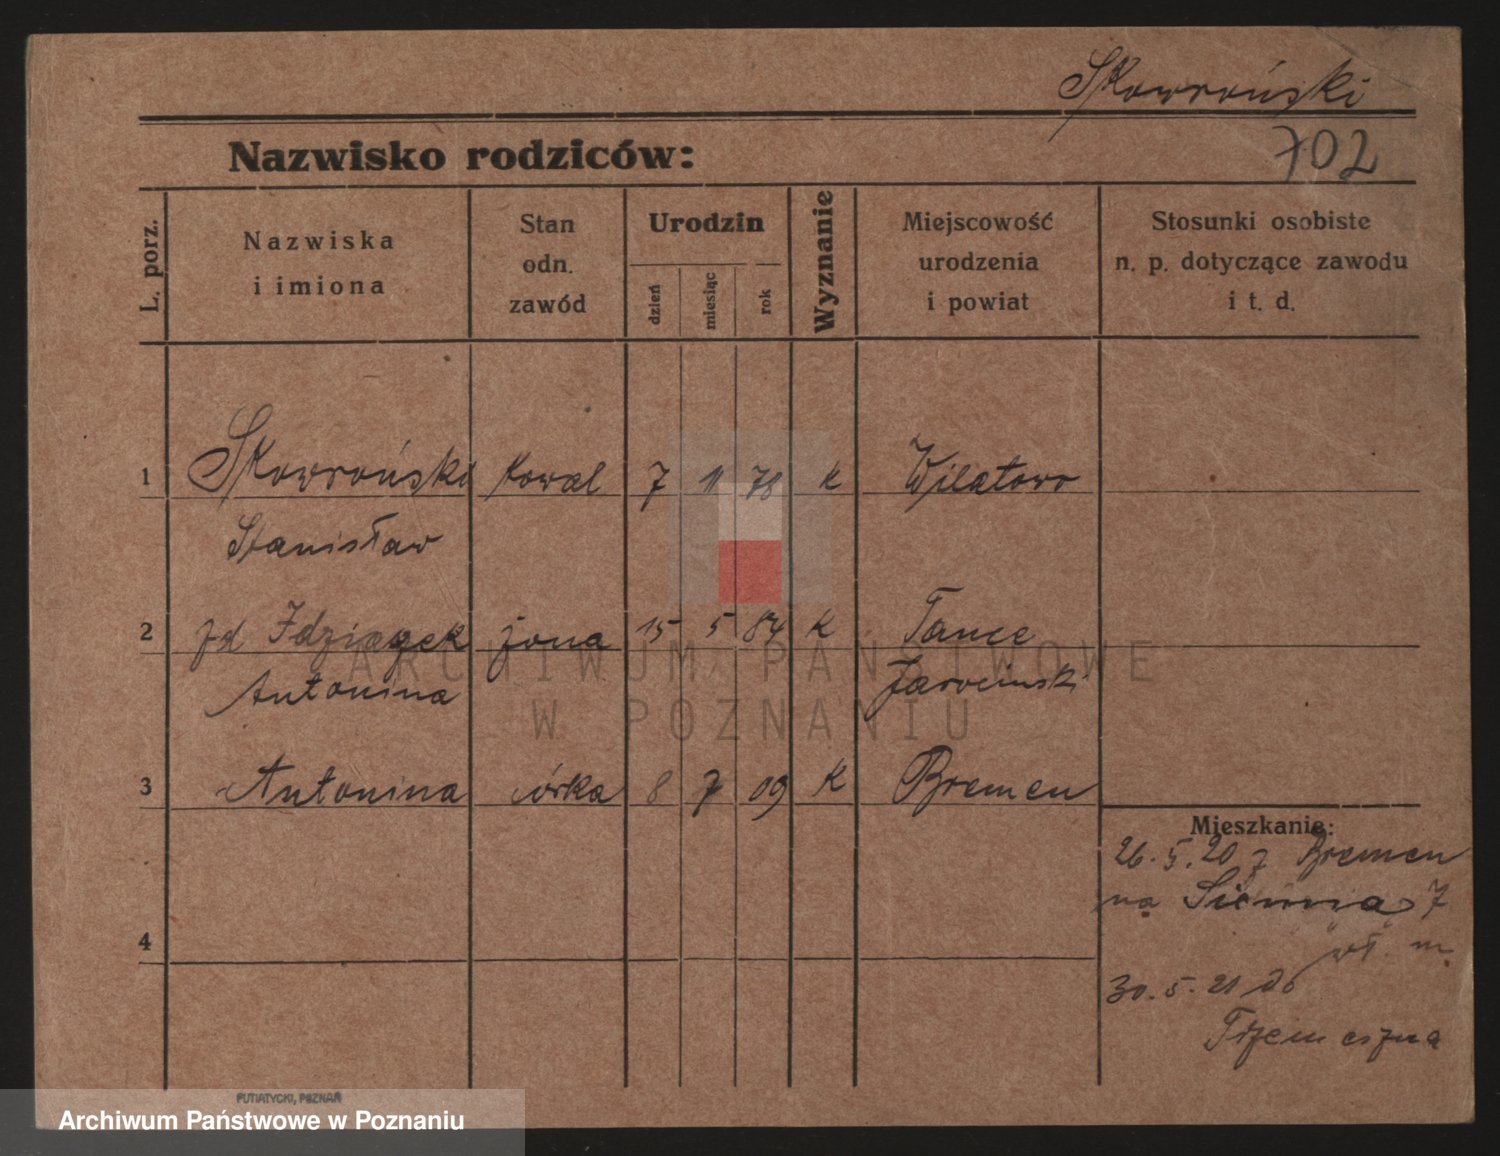 Skowroński
Nazwisko rodziców:
702
L. porz.
Nazwiska
i imiona
Stan
odn.
zawód
Urodzin
dzień
miesiąc
rok
Wyznanie
Miejscowość
urodzenia
i powiat
Stosunki osobiste
n. p. dotyczące zawodu
i t. d.
1 Skowroński kowal 7 11 78 K Wilatowo
Stanisław
2 zd Idziaszek żona 15 5 84 K Tance
Antonina Jarociński
3 Antonina córka 8 7 09 K Bremen
Mieszkanie:
26.5.20 z Bremen
na Sienna 7
wł. m.
4
30.5.21 do
Trzemeszna
ARCHIWUM PAŃSTWOWE
W POZNANIU
PUTIATYCKI, POZNAŃ
Archiwum Państwowe w Poznaniu